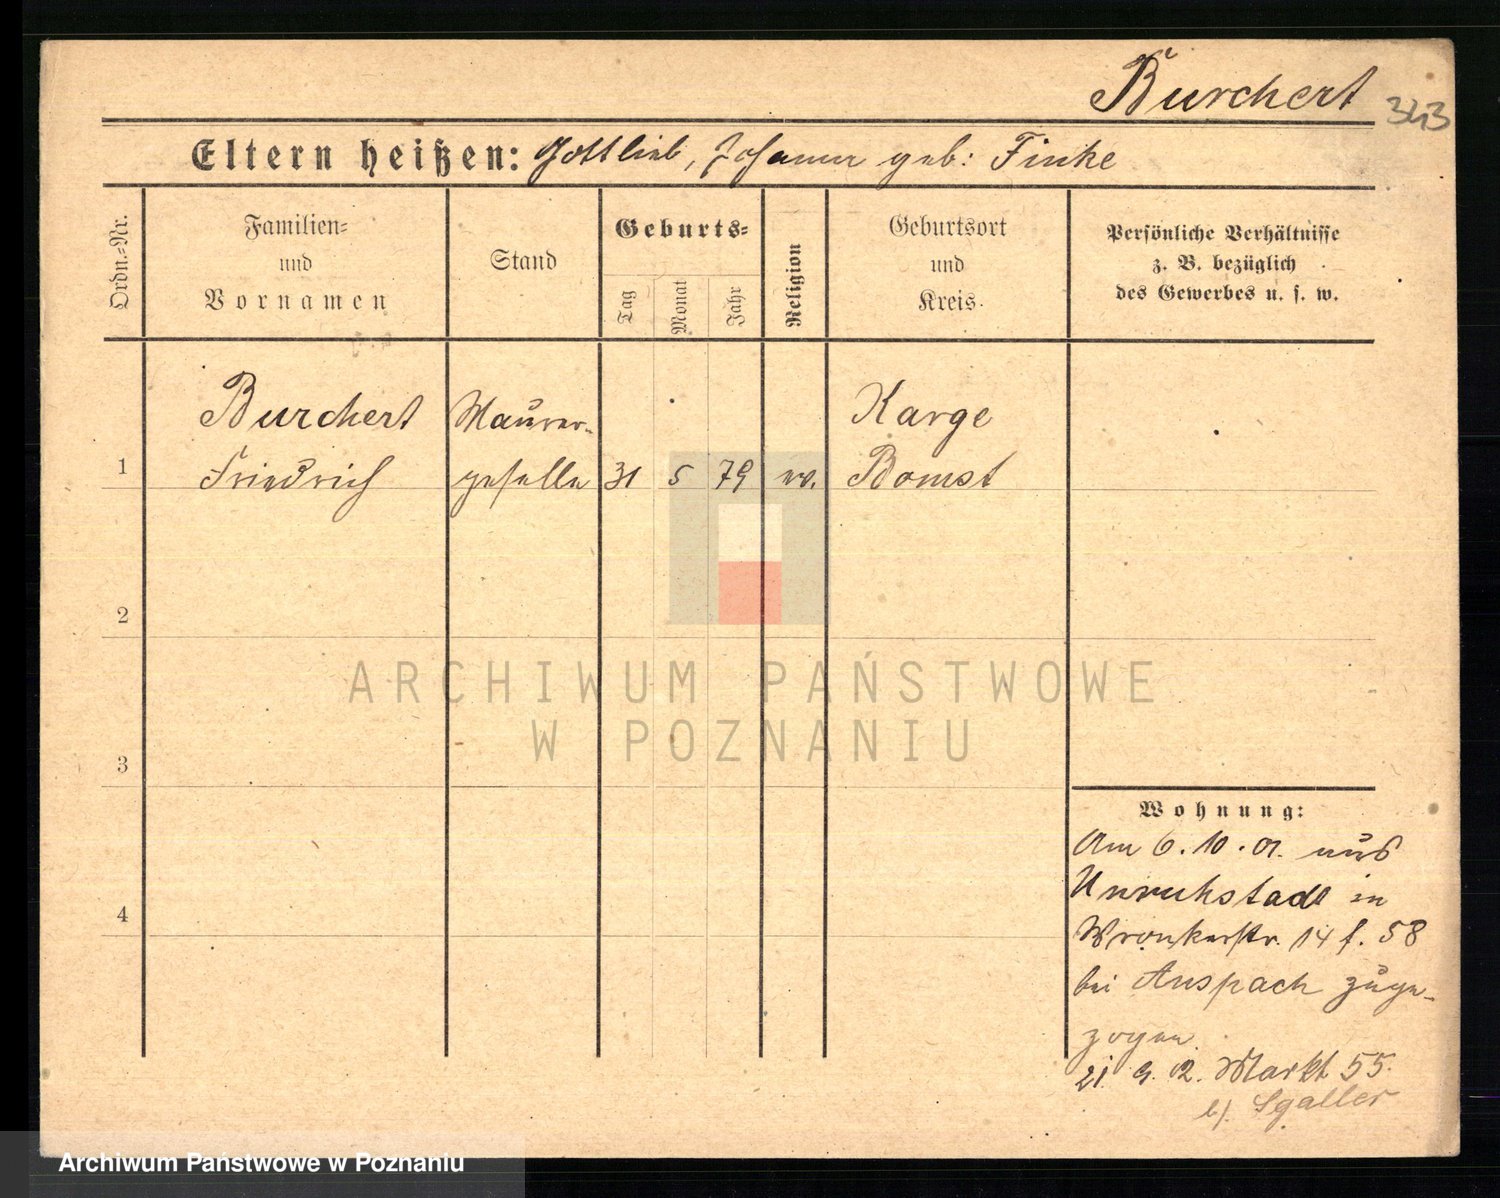 Burchert
343
Eltern heißen: Gottlieb, Johanna geb: Finke
Ordn.-Nr.
Familien-
und
Vornamen
Stand
Geburts-
Tag
Monat
Jahr
Religion
Geburtsort
und
Kreis.
Persönliche Verhältnisse
z. B. bezüglich
des Gewerbes u. s. w.
Burchert Maurer- Karge
1 Friedrich geselle 31 5 79 ev. Bomst
2
3
4
Wohnung:
Am 6.10.01. aus
Unruhstadt in
Wronkerstr. 14 f. 58
bei Anspach zuge-
zogen.
21. 9. 02. Markt 55.
b/. Sgaller
ARCHIWUM PAŃSTWOWE
W POZNANIU
Archiwum Państwowe w Poznaniu